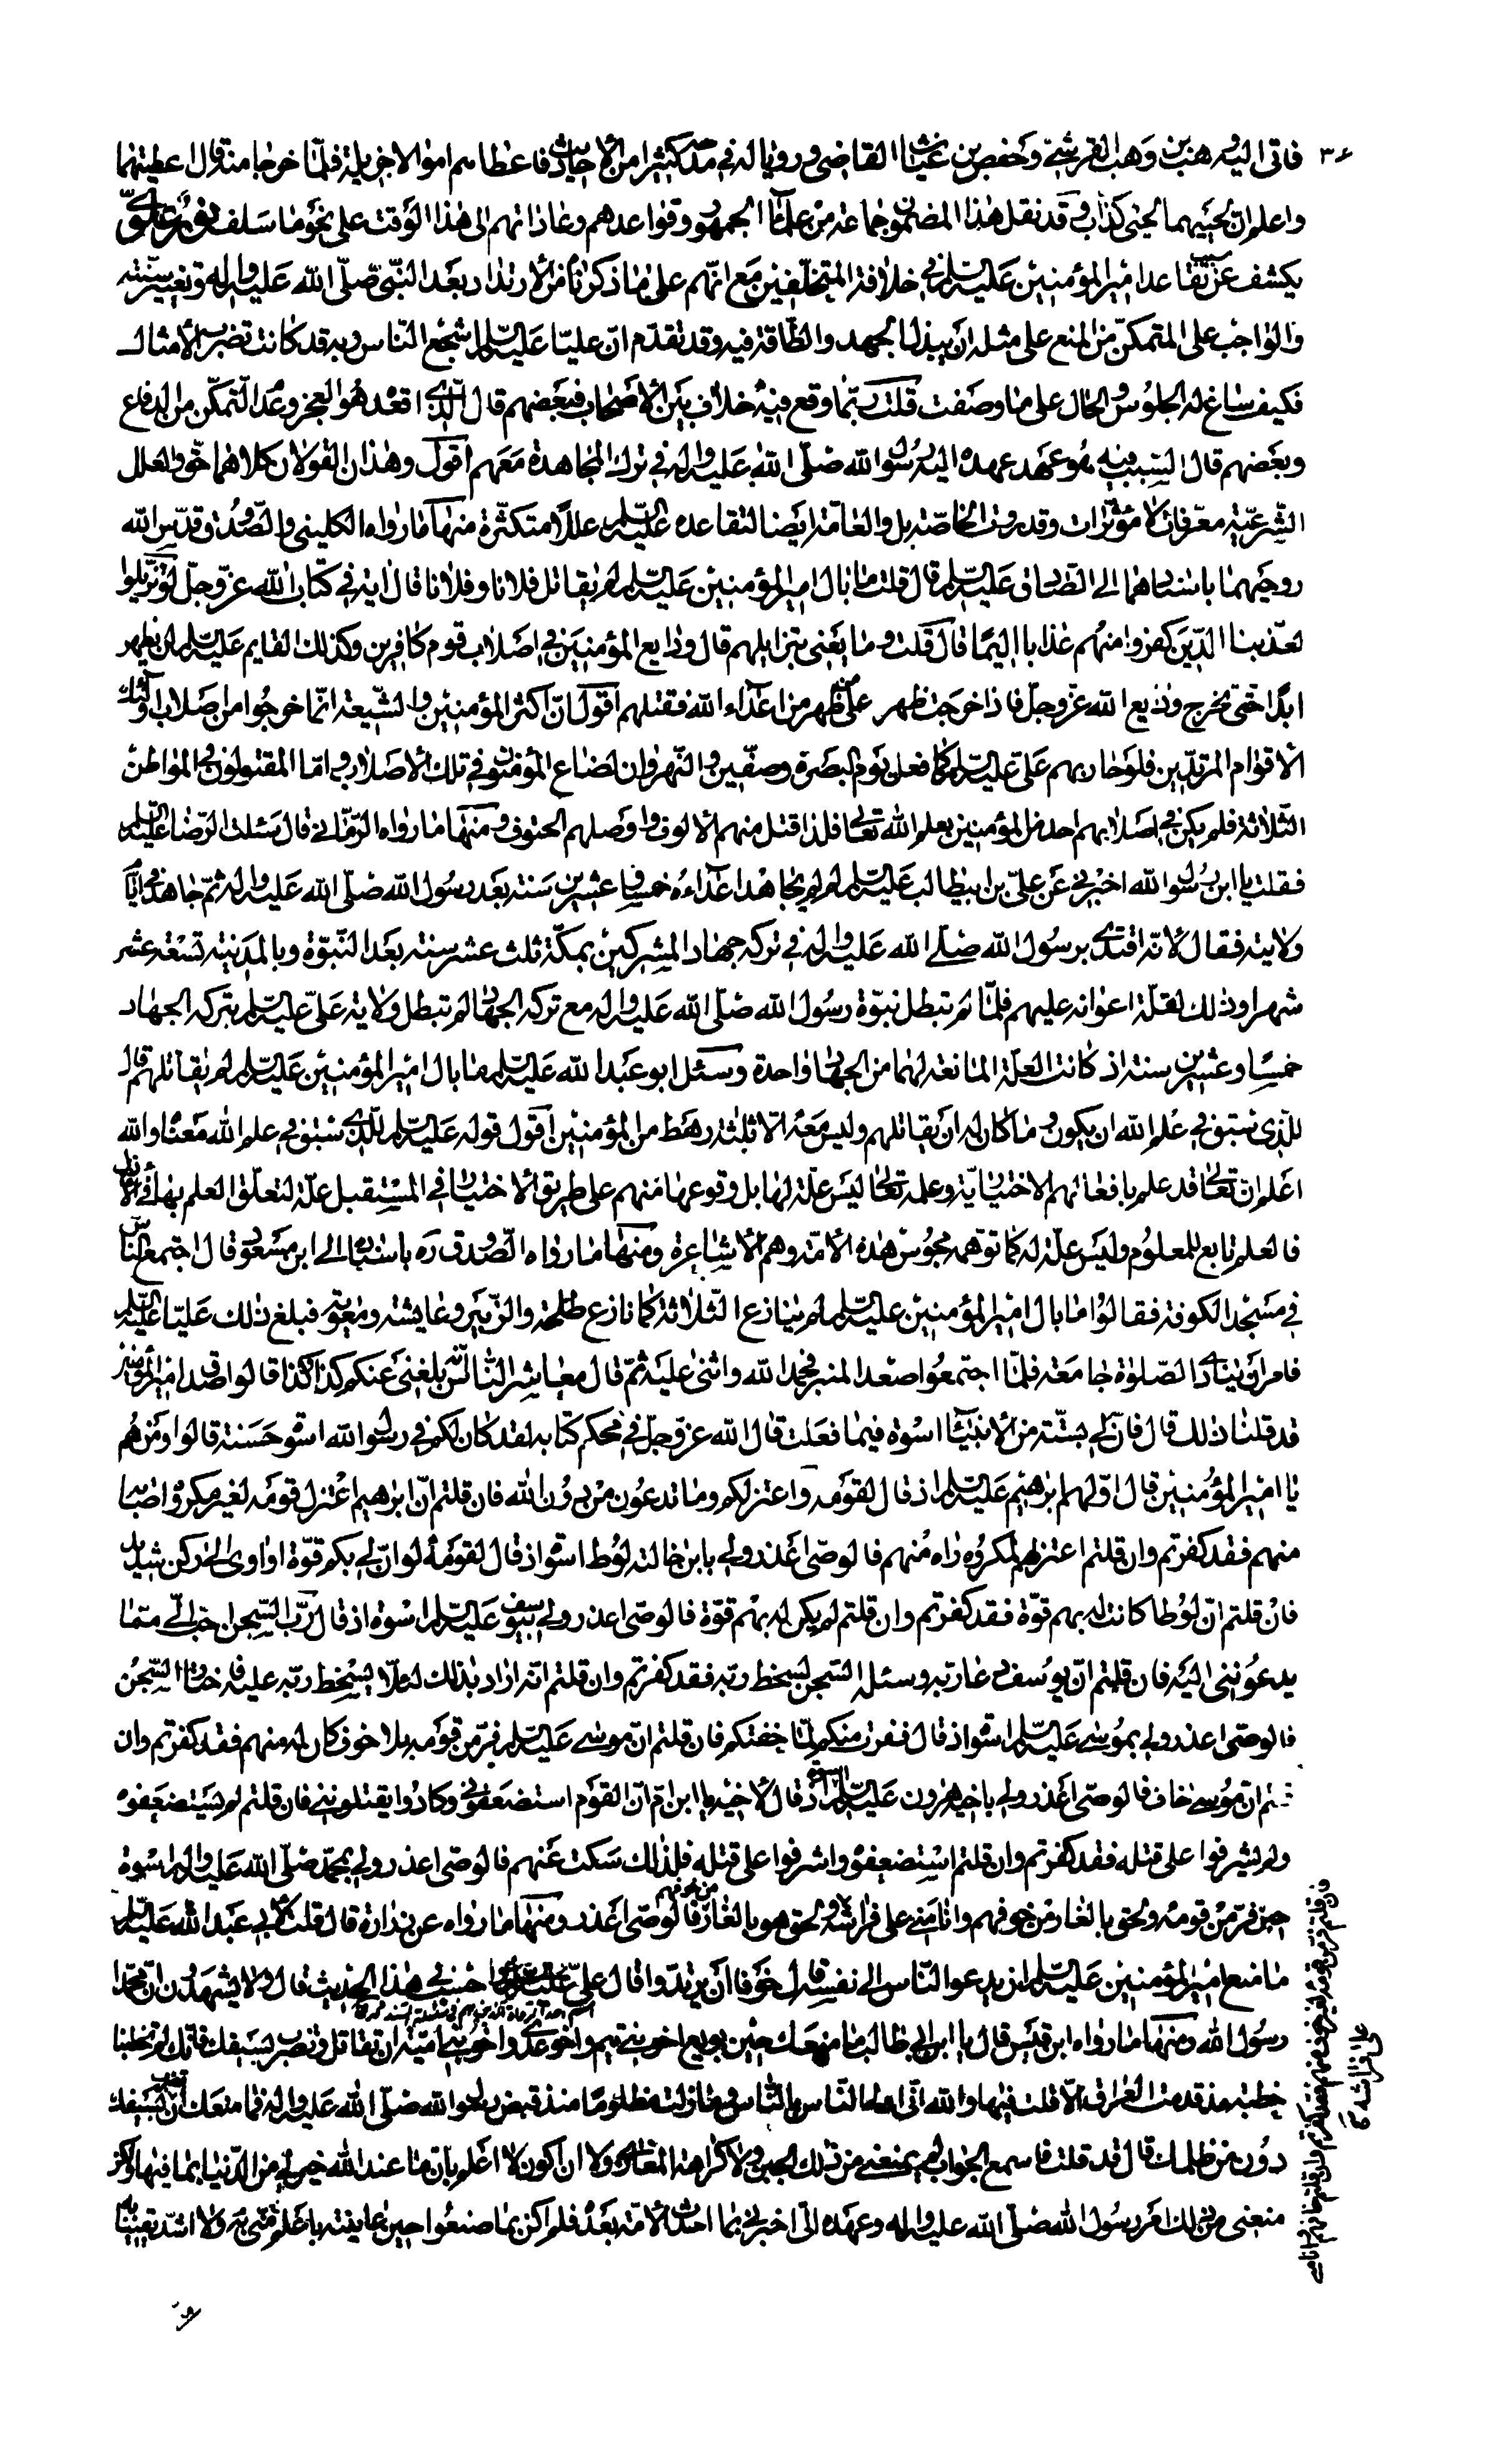 ٣٤
فاتى اليه وهب بن وهب القرشي وحفص بن غياث القاضي ورويا له في مدحه كثيرا من الأحاديث فاعطاهم اموالا جزيلة فلمّا خرجا منه قال اعطيتهما
واعلم ان لحيتيهما لحيتي كذّاب وقد نقل هذا المضمون جماعة من علماء الجمهور وقواعدهم وعاداتهم الى هذا الوقت على نحو ما سلف نور علوي
يكشف عن سبب تقاعد امير المؤمنين عليه السلم في خلافة المتخلّفين مع انّهم على ما ذكرنا من الأرتداد بعد النّبي صلّى الله عليه واله وتغيير سنّته
والواجب على المتمكّن من المنع على مثله ان يبذل الجهد والطّاقة فيه وقد تقدّم انّ عليّا عليه السلم اشجع النّاس وبه قد كانت تضرب الأمثال
فكيف ساغ له الجلوس والحال على ما وصفت قلت ربّما وقع فيه خلاف بين الأصحاب فبعضهم قال الّذي اقعده هو العجز وعدم التّمكّن من الدفاع
وبعضهم قال السّبب فيه هو عهد عهده اليه رسول الله صلّى الله عليه واله في ترك المجاهدة معهم اقول وهذان القولان كلاهما حقّ والعلل
الشّرعيّة معرّفات لا مؤثّرات وقد روت الخاصّة بل والعامّة ايضا لتقاعده عليه السّلم عللًا متكثّرة منها ما رواه الكليني والصّدوق قدّس الله
روحيهما باسنادهما الى الصّادق عليه السلم قال قلت ما بال امير المؤمنين عليه السلم لم يقاتل فلانا وفلانا قال اية في كتاب الله عزّ وجلّ لو تزيّلوا
لعذّبنا الّذين كفروا منهم عذابا اليمًا قال قلت وما يعني بتزايلهم قال ودايع المؤمنين في اصلاب قوم كافرين وكذلك القايم عليه السلم لن يظهر
ابدًا حتّى تخرج ودايع الله عزّ وجلّ فاذا خرجت ظهر على من ظهر من اعداء الله فقتلهم اقول انّ اكثر المؤمنين والشّيعة انّما خرجوا من اصلاب اولئك
الاقوام المرتدّين فلو حاربهم علي عليه السلم كما فعل يوم البصرة وصفّين والنّهروان لضاع المؤمنون في تلك الأصلاب وامّا المقتولون في المواطن
الثّلاثة فلم يكن في اصلابهم احد من المؤمنين بعلم الله تعالى فلذا قتل منهم الالوف واوصلهم الحتوف ومنها ما رواه الرمّاني قال سئلت الرّضا عليه السّلم
فقلت يا ابن رسول الله اخبرني عن علي بن ابيطالب عليه السلم لم لم يجاهد اعداءه خمسا وعشرين سنة بعد رسول الله صلّى الله عليه واله ثمّ جاهد في ايّام
ولايته فقال لأنّه اقتدى برسول الله صلّى الله عليه واله في تركه جهاد المشركين بمكّة ثلث عشر سنة بعد النّبوّة وبالمدينة تسعة عشر
شهرا وذلك لقلّة اعوانه عليهم فلمّا لم تبطل نبوّة رسول الله صلّى الله عليه واله مع تركه الجهاد لم تبطل ولاية علي عليه السلم بتركه الجهاد
خمسًا وعشرين سنة اذ كانت العلّة المانعة لهما من الجهاد واحدة وسئل ابو عبد الله عليه السلم ما بال امير المؤمنين عليه السلم لم يقاتلهم قال
للّذي سبق في علم الله ان يكون وما كان له ان يقاتلهم وليس معه الّا ثلثة رهط من المؤمنين اقول قوله عليه السلم للّذي سبق في علم الله معناه والله
اعلم انّه تعالى قد علم بافعالهم الاختياريّة وعلمه تعالى ليس علّة لها بل وقوعها منهم على طريق الاختيار في المستقبل علّة لتعلّق العلم بها في الأزل
فالعلم تابع للمعلوم وليس علّة له كما توهّمه مجوس هذه الأمّة وهم الأشاعرة ومنها ما رواه الصّدوق ره باسناده الى ابن مسعود قال اجتمع النّاس
في مسجد الكوفة فقالوا ما بال امير المؤمنين عليه السلم لم ينازع الثّلاثة كما نازع طلحة والزّبير وعايشة ومعوية فبلغ ذلك عليّا عليه السّلم
فامر ان ينادى الصّلوة جامعة فلمّا اجتمعوا صعد المنبر فحمد الله واثنى عليه ثمّ قال معاشر النّاس انّه بلغني عنكم كذا وكذا قالوا صدق امير المؤمنين
قد قلنا ذلك قال فانّ لي بستّة من الأنبياء اسوة فيما فعلت قال الله عزّ وجلّ في محكم كتابه لقد كان لكم في رسول الله اسوة حسنة قالوا ومن هم
يا امير المؤمنين قال اوّلهم ابرهيم عليه السلم اذ قال لقومه واعتزلكم وما تدعون من دون الله فان قلتم انّ ابرهيم اعتزل قومه لغير مكروه اصابه
منهم فقد كفرتم وان قلتم اعتزلهم لمكروه راه منهم فالوصي اعذر ولي بابن خالته لوط اسوة اذ قال لقومه لو انّ لي بكم قوّة او اوى الى ركن شديد
فان قلتم انّ لوطا كانت له بهم قوّة فقد كفرتم وان قلتم لم يكن له بهم قوّة فالوصي اعذر ولي بيوسف عليه السلم اسوة اذ قال ربّ السّجن احبّ الي ممّا
يدعونني اليه فان قلتم انّ يوسف دعا ربّه وسئله السّجن لسخط ربّه فقد كفرتم وان قلتم انّه اراد بذلك لئلّا يسخط ربّه عليه فاختار السّجن
فالوصي اعذر ولي بموسى عليه السلم اسوة اذ قال ففررت منكم لمّا خفتكم فان قلتم انّ موسى عليه السلم فرّ من قومه بلا خوف كان له منهم فقد كفرتم وان
قلتم ان موسى خاف فالوصي اعذر ولي باخيه هرون عليه السلم اسوة اذ قال لأخيه يا ابن امّ انّ القوم استضعفوني وكادوا يقتلونني فان قلتم لم يستضعفوه
ولم يشرفوا على قتله فقد كفرتم وان قلتم استضعفوه واشرفوا على قتله فلذلك سكت عنهم فالوصي اعذر ولي بمحمّد صلّى الله عليه واله اسوة
حين فرّ من قومه ولحق بالغار من خوفهم وانامني على فراشه ولحق هو بالغار من خوفهم فالوصي اعذر ومنها ما رواه عن زرارة قال قلت لأبي عبد الله عليه السلم
ما منع امير المؤمنين عليه السلم ان يدعو النّاس الى نفسه قال خوفا ان يرتدّوا قال علي احسب في هذا الحديث قال ولا يشهدون انّ محمّدا
رسول الله ومنها ما رواه ابن قيس قال يا ابن ابي طالب ما منعك حين بويع اخو بني تيم واخو عدي واخو بني اميّة ان تقاتل وتضرب بسيفك فانّك لم تخطبنا
خطبة مذ قدمت العراق الّا قلت فيها والله انّي اولى النّاس بالنّاس وما زلت مظلومًا منذ قبض رسول الله صلّى الله عليه واله فما منعك ان تضرب بسيفك
دون من ظلمك قال قد قلت فاسمع الجواب لم يمنعني من ذلك الجبن ولا كراهة ولا ان اكون لا اعلم بان ما عند الله خير لي من الدّنيا بما فيها ولكن
منعني من ذلك امر رسول الله صلّى الله عليه واله وعهده الي اخبرني بما احدث الأمّة بعده فلم اكن بما صنعوا حين عاينته باعلم منّي به ولا اشدّ يقينا به
فان قلتم فرّ من قومه لغير خوف منهم فقد كفرتم وان قلتم خافهم وانامني
على فراشه